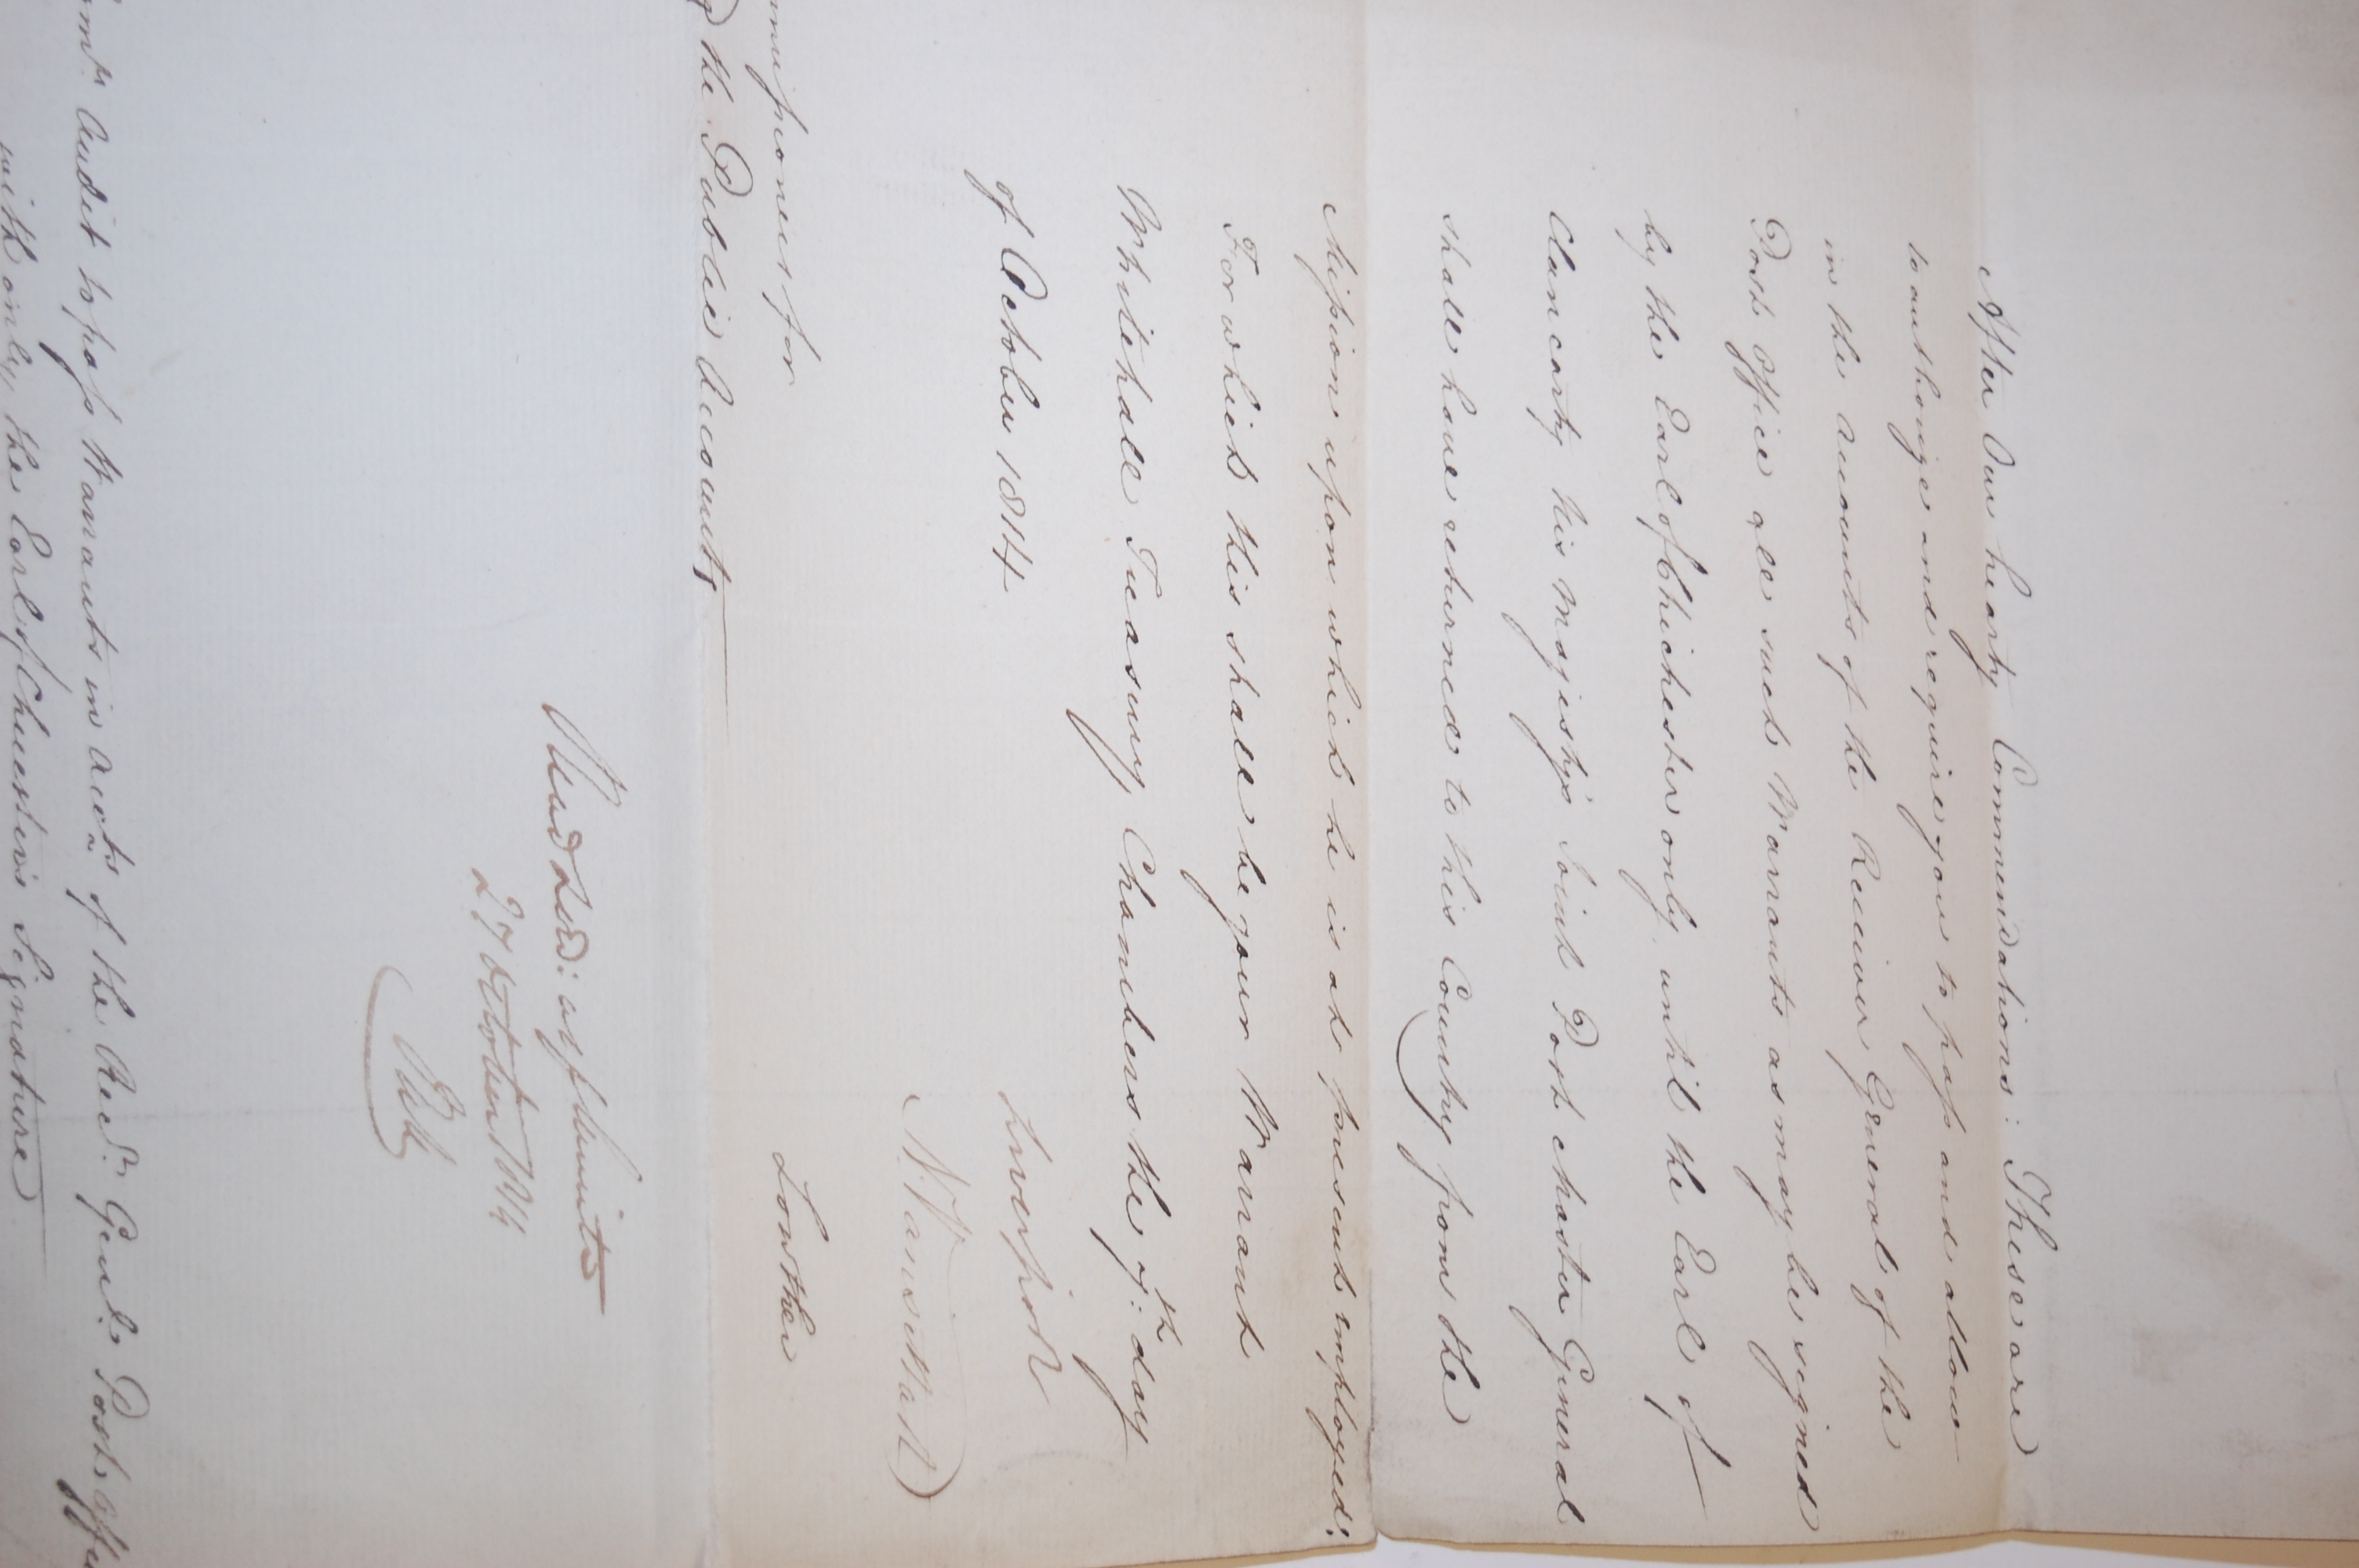 After Our hearty Commendations: These are
to authorize and require you to pass and allow
in the Accounts of the Receiver General of the
Post Office all such Warrants as may be signed
by the Earl of Chichester only until the Earl of
Clancarty His Majesty's Joint Post Master General
shall have returned to this Country from the
Mission upon which he is at present employed.
For which this shall be your Warrant
Whitehall Treasury Chambers the 7th: day
of October 1814
Liverpool
N. Vansittart
Lowther
mmissioners for
the Public Accounts
Read
27 October 1814
omrs. Audit to pass Warrants in Accts. of the Recr. Genl. Post Offi
with only the Earl of Chichester's Signature